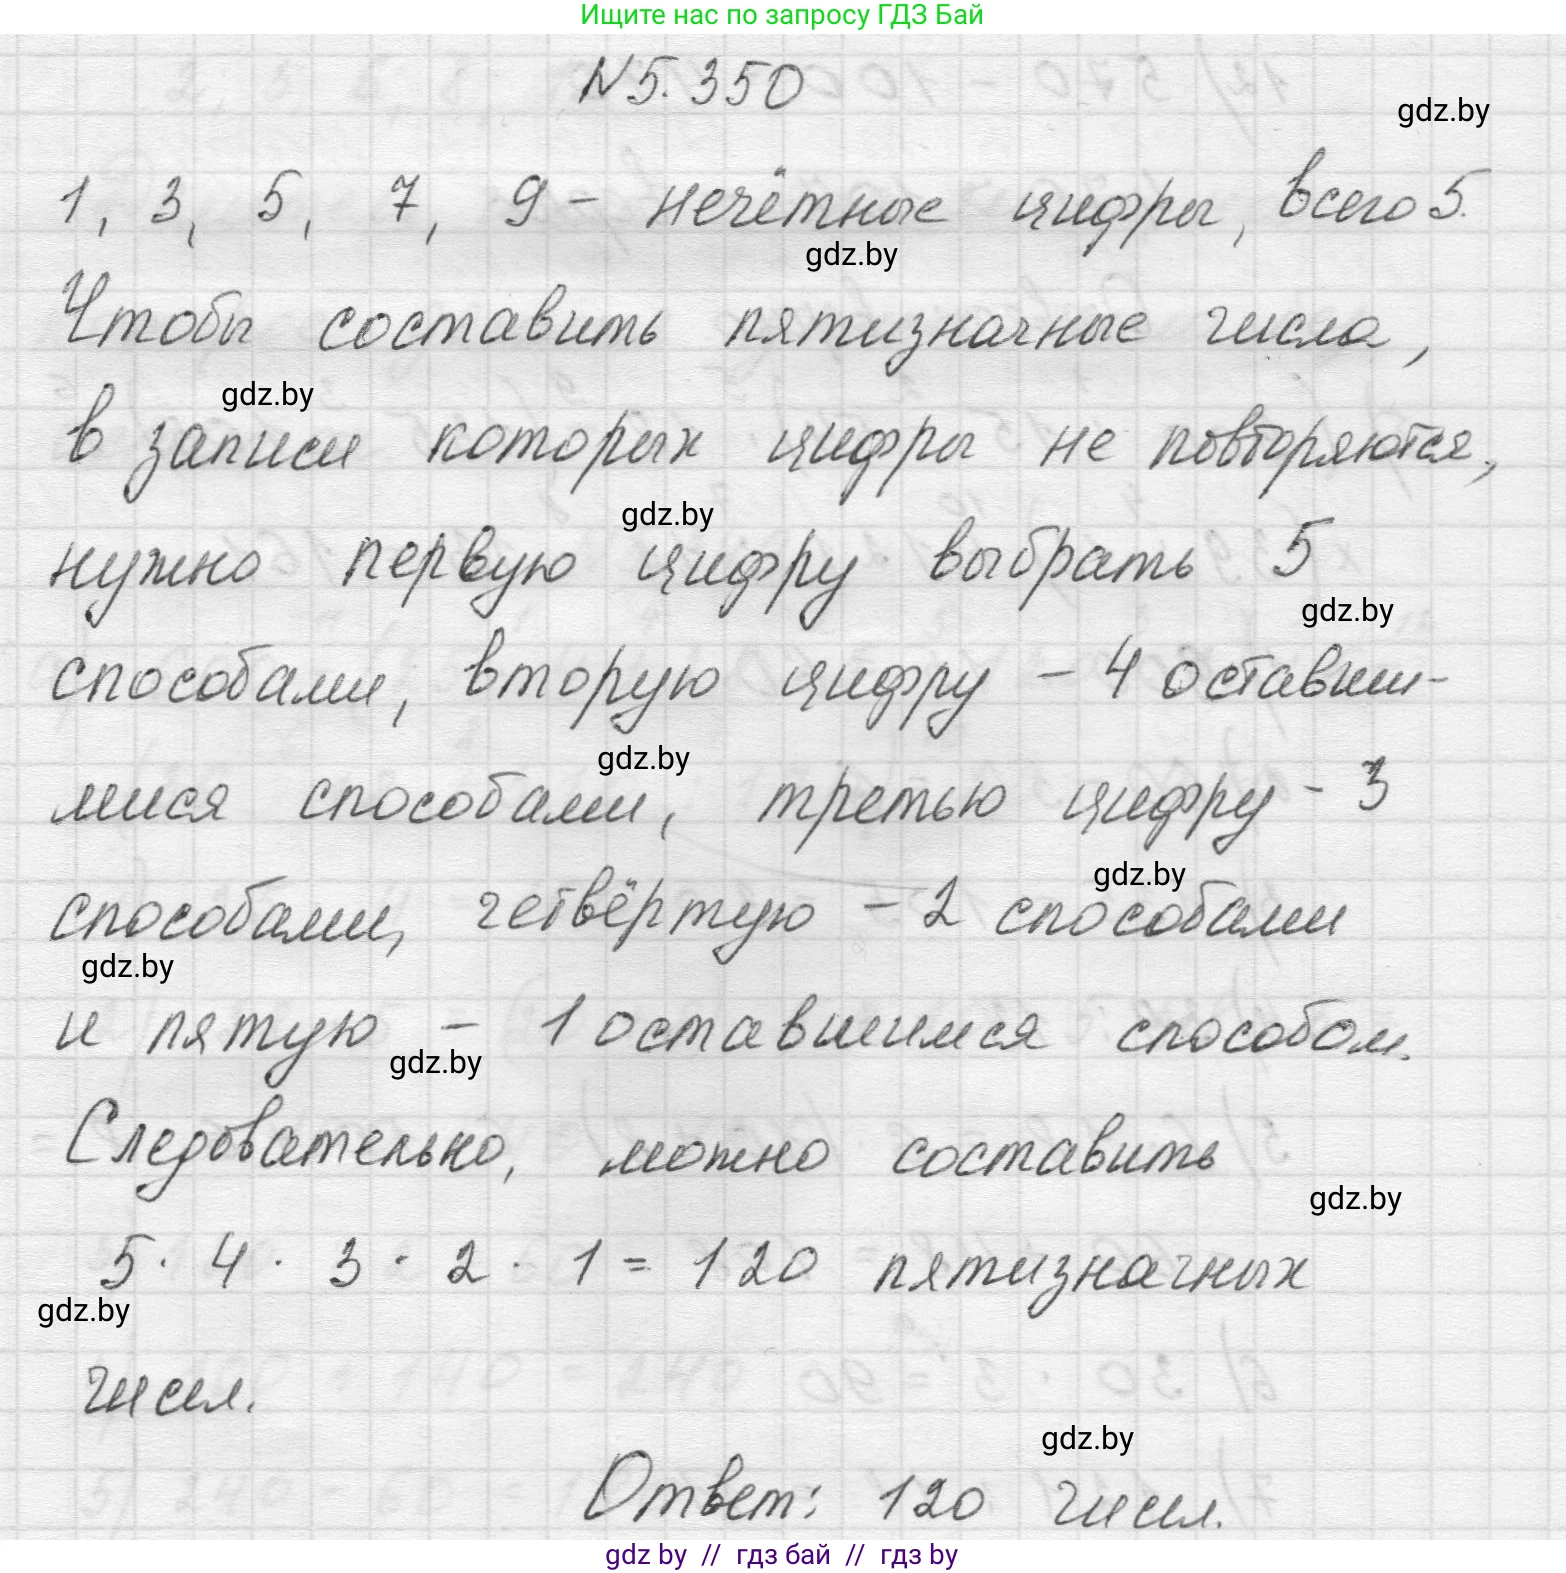 Ищите нас по запросу ГДЗ Бай
№5.350
gdz.by
1, 3, 5, 7, 9 - нечётные цифры, всего 5.
gdz.by
Чтобы составить пятизначные числа,
gdz.by
в записи которых цифры не повторяются,
gdz.by
нужно первую цифру выбрать 5
gdz.by
способами, вторую цифру - 4 оставши-
gdz.by
мися способами, третью цифру - 3
gdz.by
способами, четвёртую - 2 способами
gdz.by
и пятую - 1 оставшимся способом.
gdz.by
Следовательно, можно составить
gdz.by
5 · 4 · 3 · 2 · 1 = 120 пятизначных
gdz.by
чисел.
gdz.by
Ответ: 120 чисел.
gdz by // гдз бай // гдз by